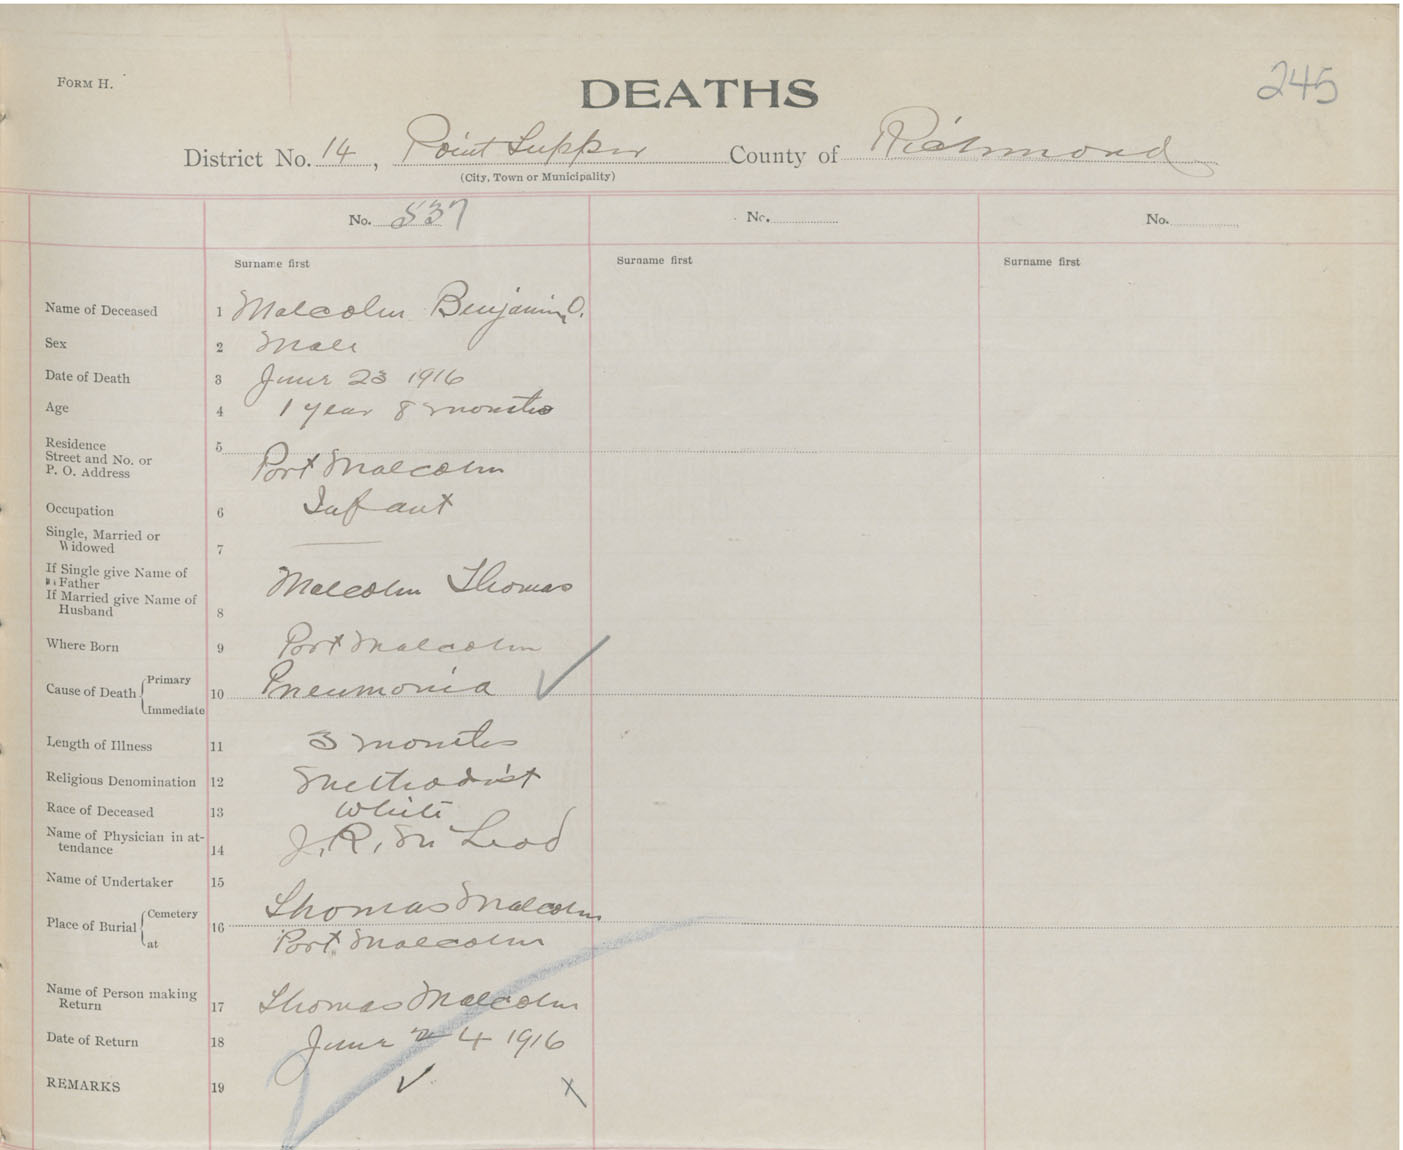 FORM H.
DEATHS
245
District No. 14, Point Tupper County of Richmond
(City, Town or Municipality)
No. 537 No. No.
Surname first Surname first Surname first
Name of Deceased 1 Malcolm Benjamin O.
Sex 2 Male
Date of Death 3 June 23 1916
Age 4 1 year 8 months
Residence
Street and No. or
P. O. Address 5 Port Malcolm
Occupation 6 Infant
Single, Married or
Widowed 7
If Single give Name of
Father
If Married give Name of
Husband 8 Malcolm Thomas
Where Born 9 Port Malcolm
Cause of Death Primary 10 Pneumonia
Immediate
Length of Illness 11 3 months
Religious Denomination 12 Methodist
Race of Deceased 13 White
Name of Physician in at-
tendance 14 J. R. Mc Leod
Name of Undertaker 15
Thomas Malcolm
Place of Burial Cemetery 16
at Port Malcolm
Name of Person making
Return 17 Thomas Malcolm
Date of Return 18 June 24 1916
REMARKS 19